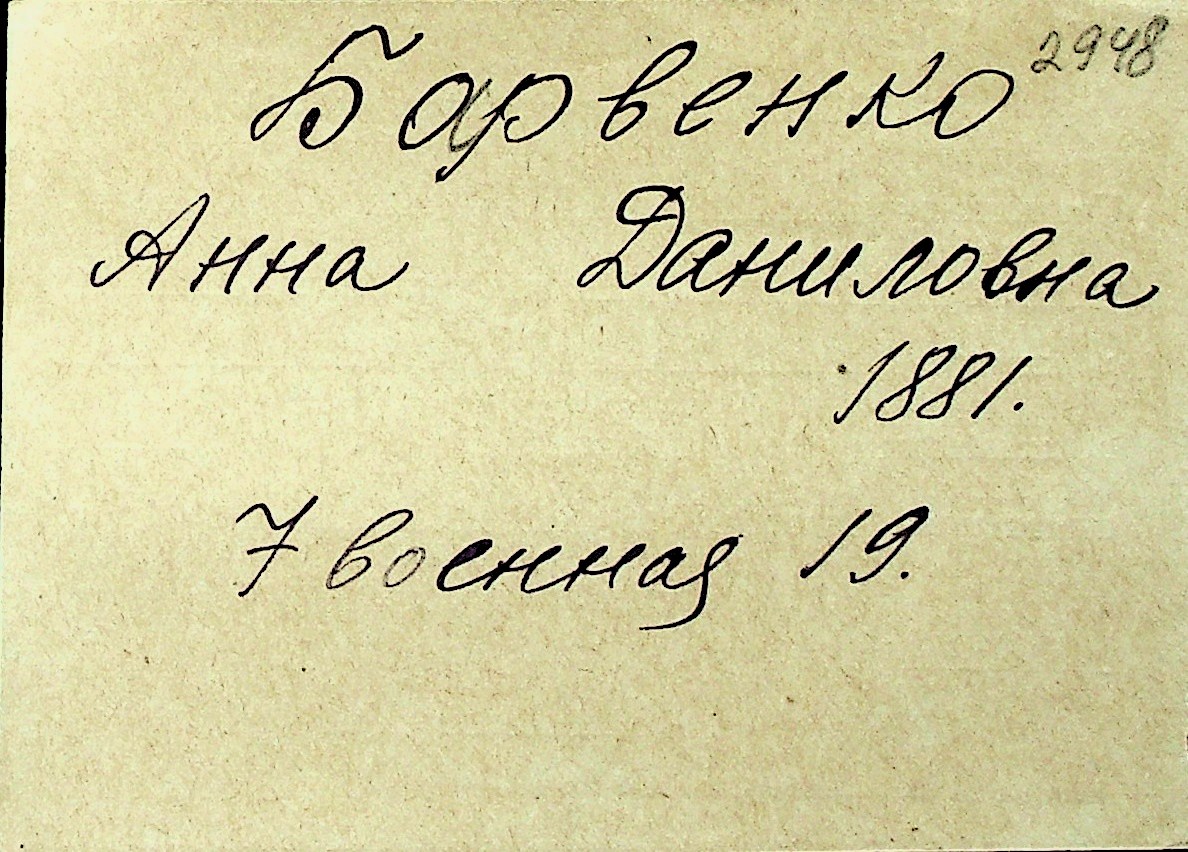 Барвенко 2948
Анна Даниловна
1881.
7 военная 19.